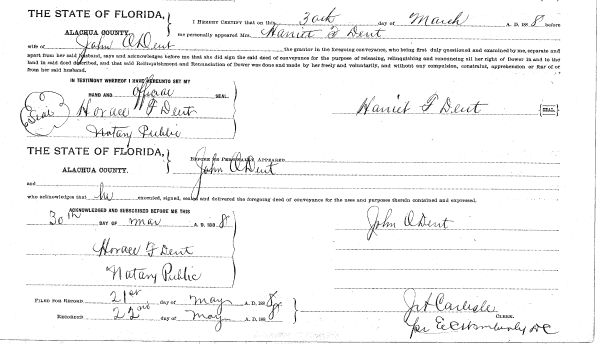 THE STATE OF FLORIDA,
ALACHUA COUNTY.
I HEREBY CERTIFY that on this 30th day of March A. D. 188 8 before
me personally appeared Mrs. Harriet F Dent
wife of John A Dent the grantor in the foregoing conveyance, who being first duly questioned and examined by me, separate and
apart from her said husband, says and acknowledges before me that she did sign the said deed of conveyance for the purpose of releasing, relinquishing and renouncing all her right of Dower in and to the
land in said deed described, and that said Relinquishment and Renunciation of Dower was done and made by her freely and voluntarily, and without any compulsion, constraint, apprehension or fear of or
from her said husband.
IN TESTIMONY WHEREOF I HAVE HEREUNTO SET MY
HAND AND official SEAL.
Seal
Horace F Dent
Notary Public
Harriet F Dent SEAL
THE STATE OF FLORIDA,
ALACHUA COUNTY.
BEFORE ME PERSONALLY APPEARED
John A Dent
and
who acknowledges that he executed, signed, sealed and delivered the foregoing deed of conveyance for the uses and purposes therein contained and expressed.
ACKNOWLEDGED AND SUBSCRIBED BEFORE ME THIS
30th DAY OF Mar A. D. 188 8
Horace F Dent
Notary Public
John A Dent
FILED FOR RECORD 21st day of May A. D. 188 8
RECORDED 22nd day of May A. D. 188 8
J H Carlisle
CLERK.
per DC